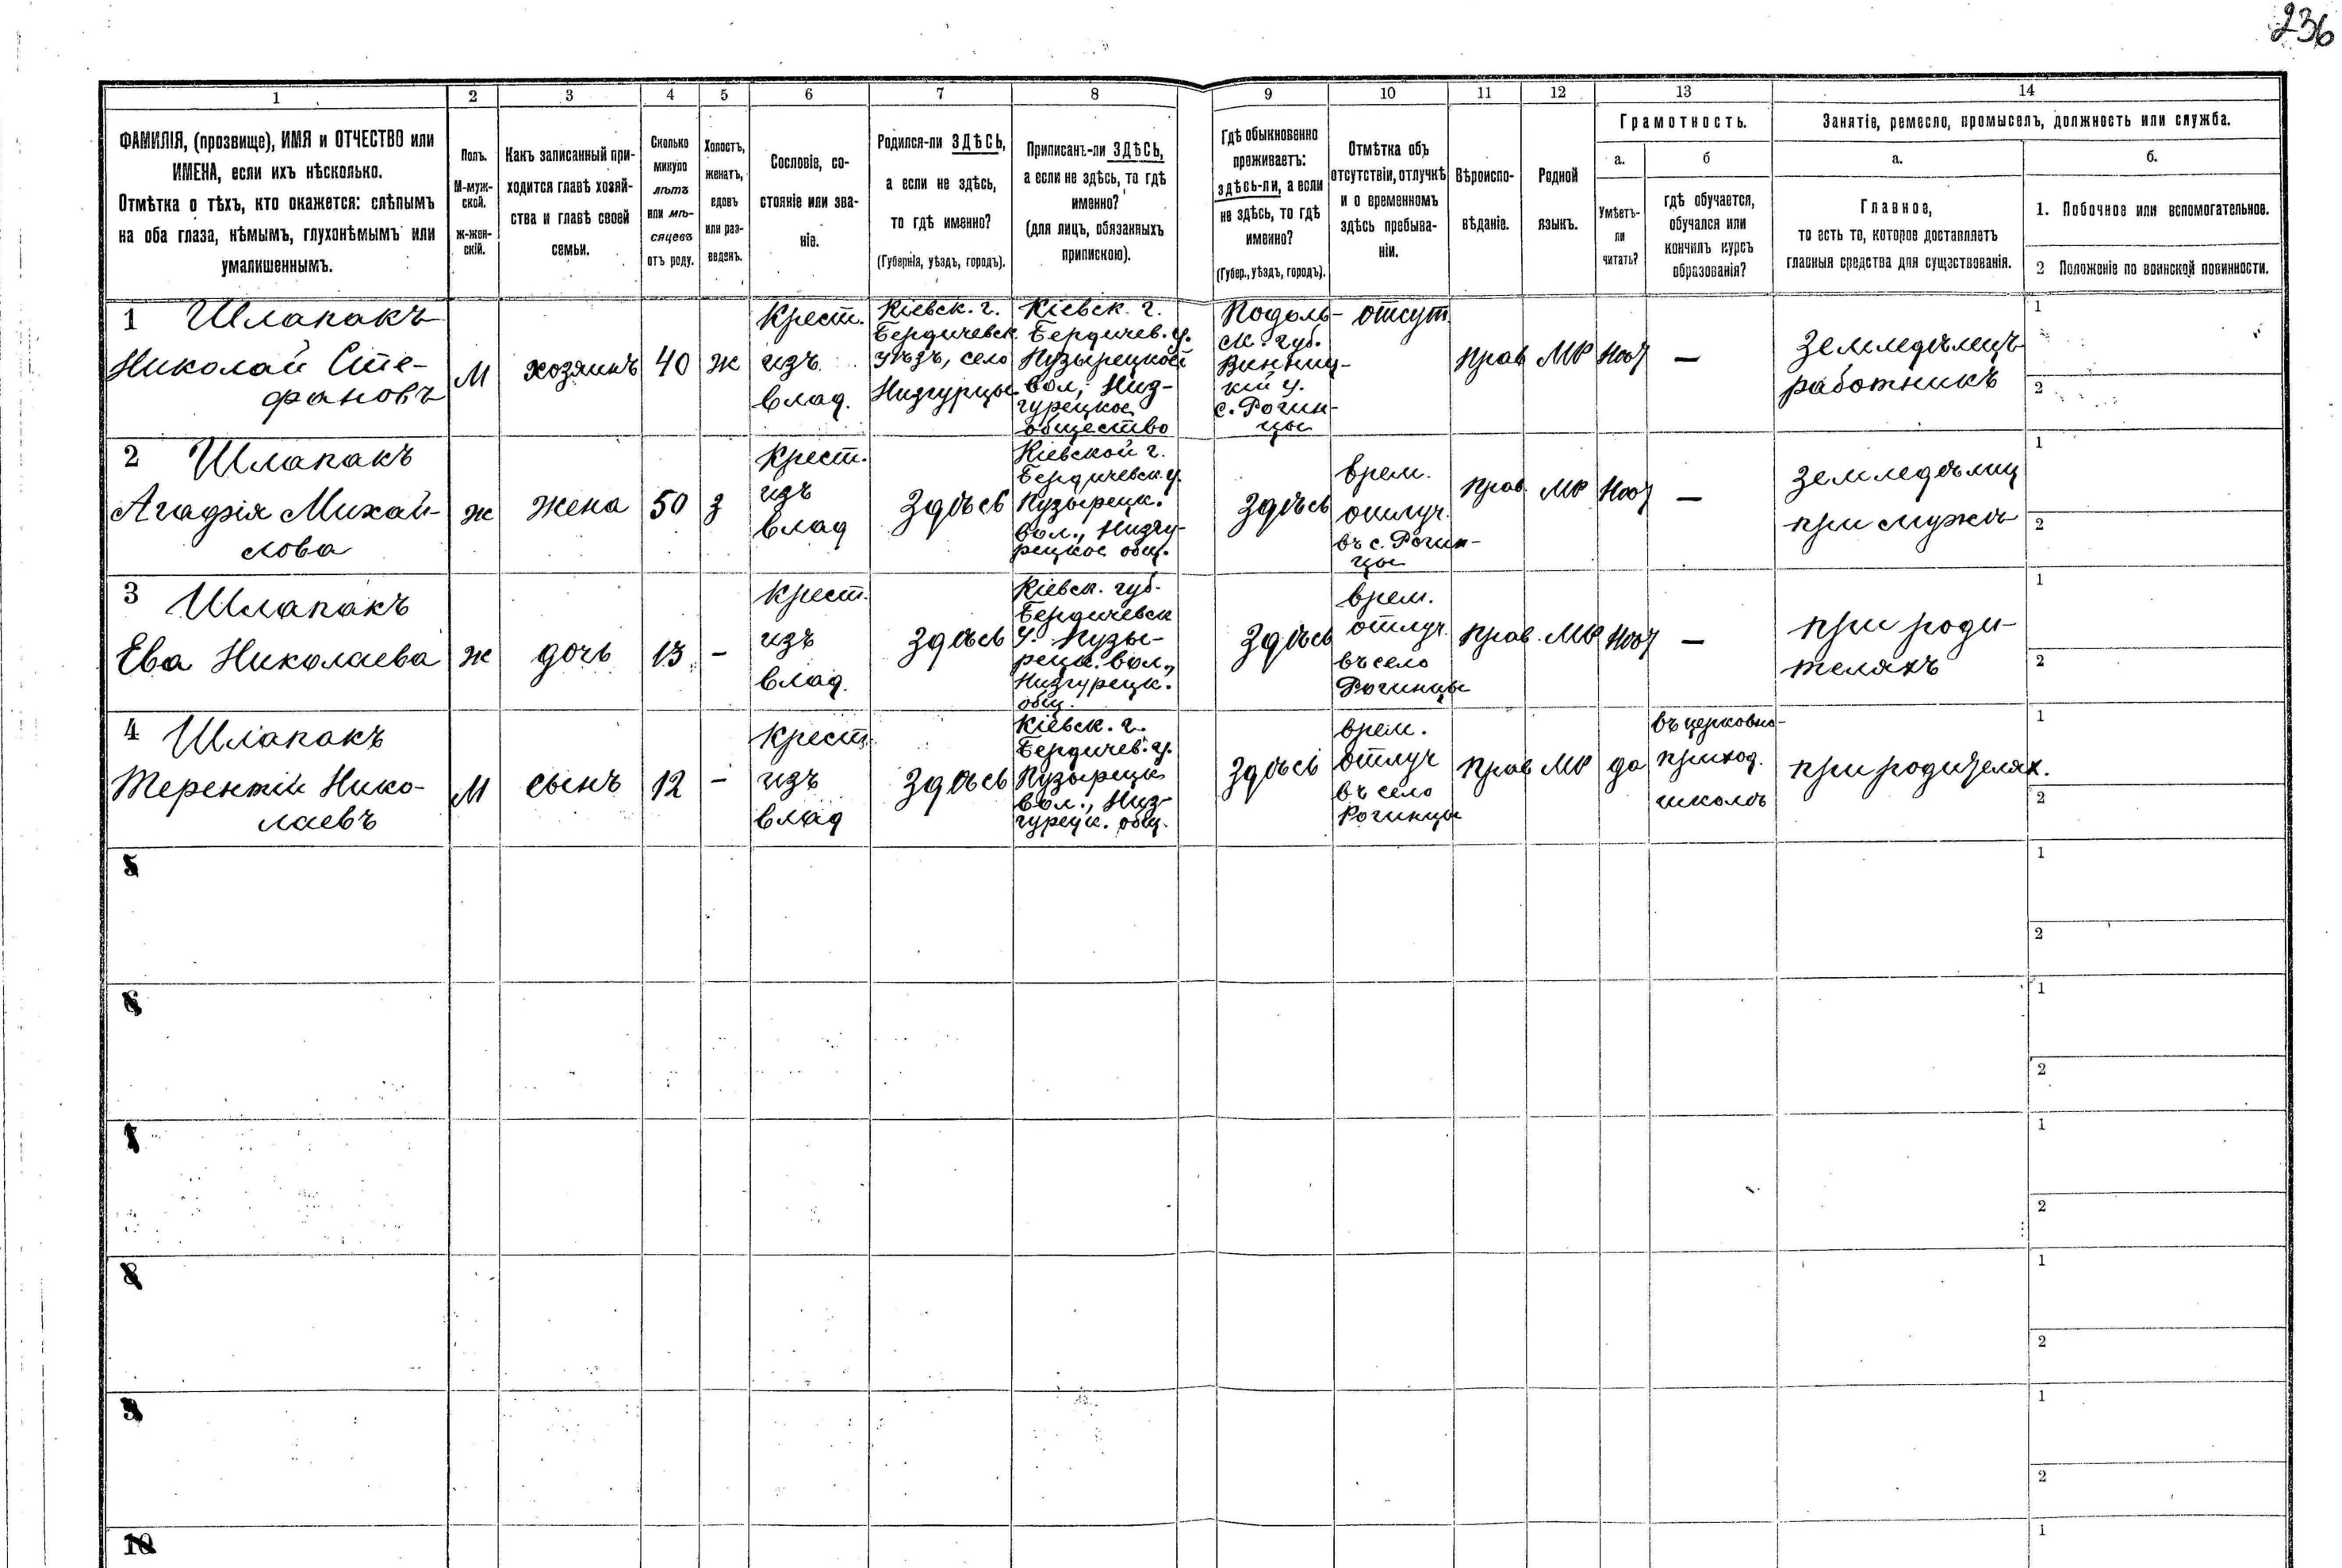 236
1 2 3 4 5 6 7 8 9 10 11 12 13 14
ФАМИЛІЯ, (прозвище), ИМЯ и ОТЧЕСТВО или
ИМЕНА, если ихъ нѣсколько.
Отмѣтка о тѣхъ, кто окажется: слѣпымъ
на оба глаза, нѣмымъ, глухонѣмымъ или
умалишеннымъ.
Полъ.
М-муж-
ской.
ж-жен-
скій.
Какъ записанный при-
ходится главѣ хозяй-
ства и главѣ своей
семьи.
Сколько
минуло
лѣтъ
или мѣ-
сяцевъ
отъ роду.
Холостъ,
женатъ,
вдовъ
или раз-
веденъ.
Сословіе, со-
стояніе или зва-
ніе.
Родился-ли ЗДѢСЬ,
а если не здѣсь,
то гдѣ именно?
(Губернія, уѣздъ, городъ).
Приписанъ-ли ЗДѢСЬ,
а если не здѣсь, то гдѣ
именно?
(для лицъ, обязанныхъ
припискою).
Гдѣ обыкновенно
проживаетъ:
здѣсь-ли, а если
не здѣсь, то гдѣ
именно?
(Губер., уѣздъ, городъ).
Отмѣтка объ
отсутствіи, отлучкѣ
и о временномъ
здѣсь пребыва-
ніи.
Вѣроиспо-
вѣданіе.
Родной
языкъ.
Грамотность.
а.
Умѣетъ-
ли
читать?
б
гдѣ обучается,
обучался или
кончилъ курсъ
образованія?
Занятіе, ремесло, промыселъ, должность или служба.
а.
Главное,
то есть то, которое доставляетъ
главныя средства для существованія.
б.
1. Побочное или вспомогательное.
2 Положеніе по воинской повинности.
1 Шлапакъ
Николай Сте-
фановъ
М
хозяинъ
40
ж
Крест.
изъ
влад.
Кіевск. г.
Бердичевск.
уѣздъ, село
Низгурцы
Кіевск. г.
Бердичев. у.
Пузырецкой
вол., Низ-
гурецкое
общество
Подоль-
ск. губ.
Винниц-
кій у.
с. Рогин-
цы
отсут.
прав
МР
—
земледѣлецъ
работникъ
1
2
2 Шлапакъ
Агафія Михай-
лова
ж
жена
50
з
Крест.
изъ
влад
Здѣсь
Кіевской г.
Бердичевск. у.
Пузырецк.
вол., Низгу-
рецкое общ.
Здѣсь
врем.
отлуч.
въ с. Рогин-
цы
прав
МР
—
земледѣлец
при мужѣ
1
2
3 Шлапакъ
Ева Николаева
ж
дочь
13
-
Крест.
изъ
влад.
Здѣсь
Кіевск. губ.
Бердичевск
у. Пузы-
рецк. вол.,
Низгурецк.
общ.
Здѣсь
врем.
отлуч.
въ село
Рогинцы
прав.
МР
—
при роди-
теляхъ
1
2
4 Шлапакъ
Терентій Нико-
лаевъ
М
сынъ
12
-
Крест.
изъ
влад
Здѣсь
Кіевск. г.
Бердичев. у.
Пузырецк
вол., Низ-
гурецк. общ.
Здѣсь
врем.
отлуч
въ село
Рогинцы
прав
МР
да
въ церковно-
приход.
школѣ
при родителях.
1
2
5
1
2
6
1
2
7
1
2
8
1
2
9
1
2
10
1